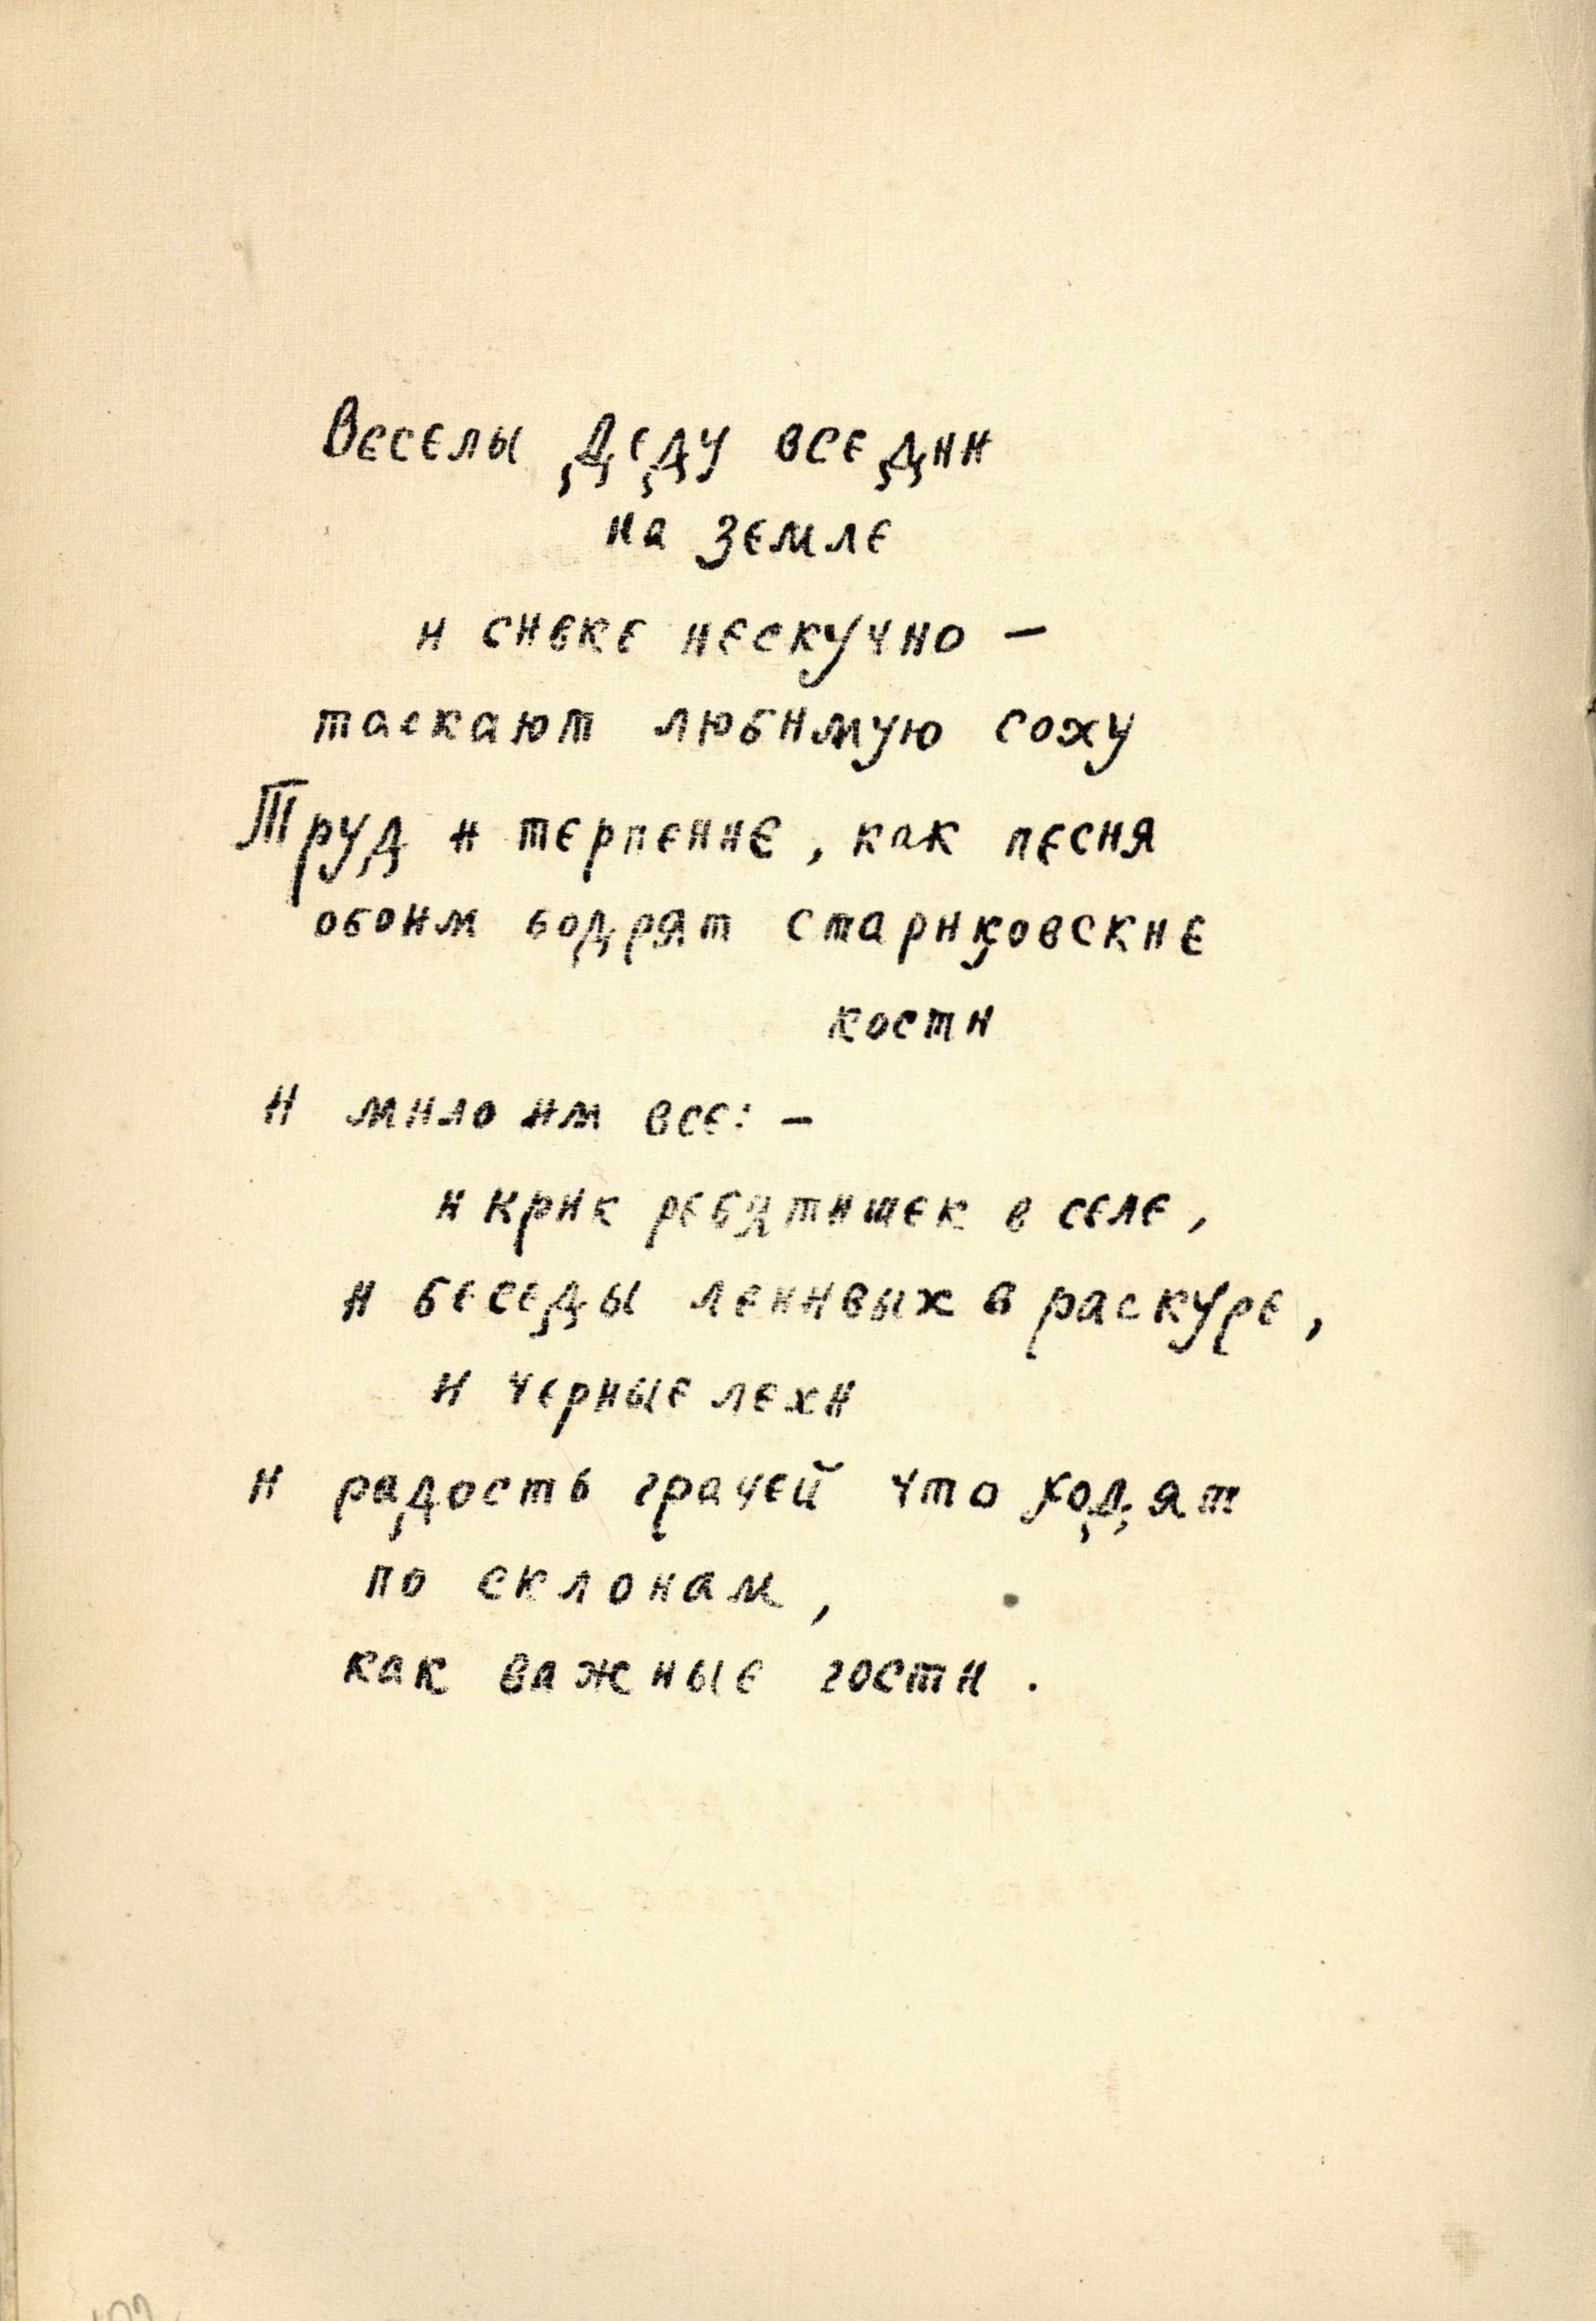 Веселы деду все дни
на земле
и сивке нескучно —
таскают любимую соху
Труд и терпение, как песня
обоим бодрят стариковские
кости
И мило им все: —
и крик ребятишек в селе,
и беседы ленивых в раскуре,
и черные лехи
и радость грачей что ходят
по склонам,
как важные гости.